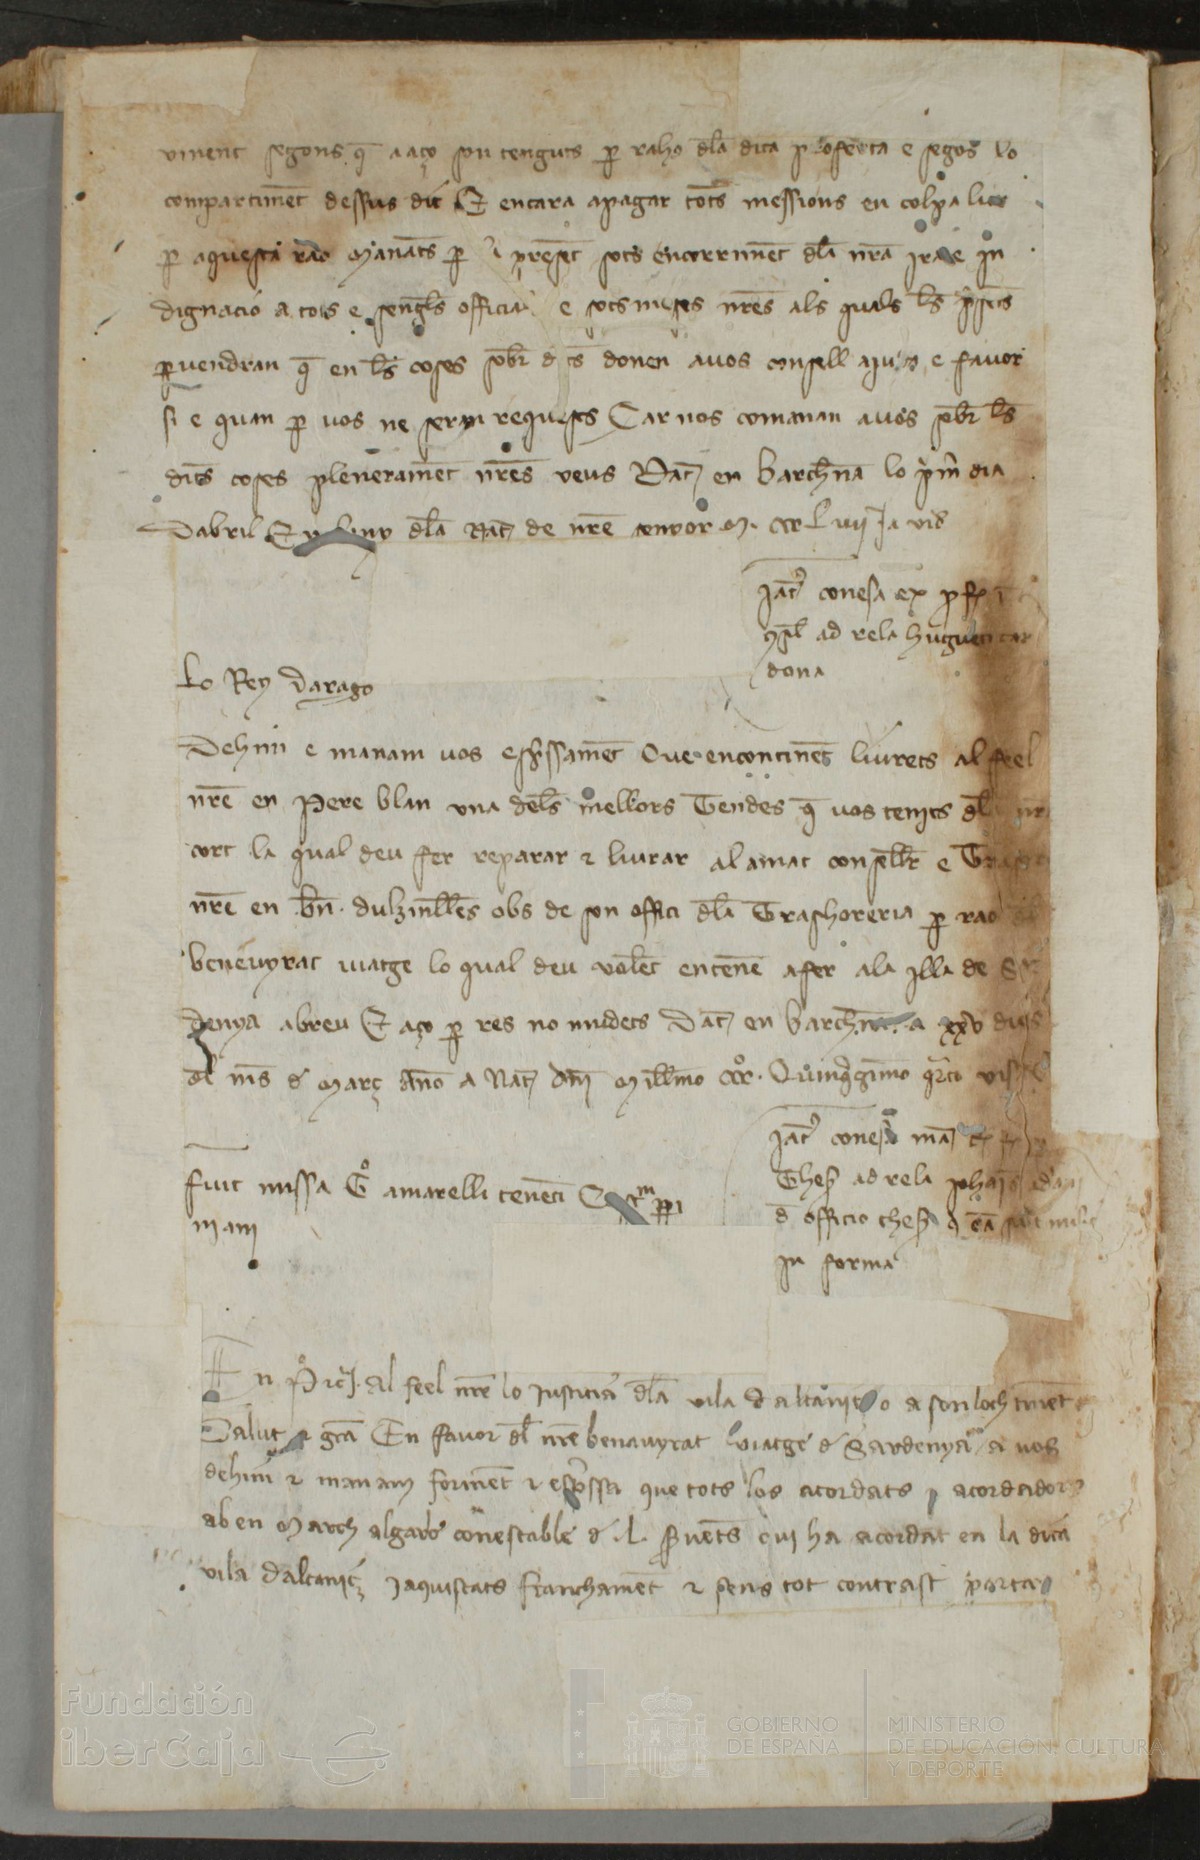 vinent segons q̄ a aço son tenguts p̱ raho dl̄a dita proferta e segōs lo
compartimēt dessus dit Et encara apagar tōts messions en colpa lur
p̱ aquesta rao Manāts p̱ la presēt sots encorrimēt dl̄a nr̄a ira e in
dignacio a tots e sengl̄s officials e sotsmeses nr̄es als quals l̄s p̄sēts
p̱vendran q̄ en l̄s coses sob̄r dc̄s donen a uos consell ajuda e fauor
si e quan p̱ uos ne seran requests Car nos comanan a uos sob̄r l̄s
dit̄s coses plenerament nr̄es veus Dat̄ en barch̄na lo p̄m dia
Dabril En lany dl̄a Nat̄ de nr̄e senyor M. CCC Liiii Ja vid̄
Jac̄ conesa ex
ad rela hugueti car
dona
Lo Rey Darago
Dehim e manam uos exp̄ssamēt Que encontinēt liurets al feel
nr̄e en Pere blan una del̄s mellors Tendes q̄ uos tenits dl̄a nr̄a
cort la qual deu fer reparar & liurar al amat consell̄r e Tras
nr̄e en .bn̄. dulzinell̄es obs de son offici dl̄a Trashoreria p̱ rao dl̄
beneuyrat uiatge lo qual deu uolēt entēne a fer a la illa de Sar
denya abreu Et aço p̱ res no mudets Dat̄ en barch̄na a xxv dies
dl̄ mes de Març Ano a Nat̄ dn̄i Mill̄mo CCC°. Quinq̄gesimo q̄rto vis
Jac̄ conesa man̄
Thes̄ ad rela
d̄ officio thes̄ q̄ ea fuit miss
in forma
fuit missa G° amarelli tenēti
man
En P° &c̄. Al feel nr̄e lo Justicia dl̄a vila d alcanic o a son loch tinēt
Salut & gr̄a En fauor dl̄ nr̄e benauyrat uiatge d̄ Sardenya a uos
dehim & manam formēt & exp̄ssa que tots los acordats acordadors
ab en March algarb̄ conestable d̄ .L. s̄uēts qui ha acordat en la dita
vila dalcaniç jaquiscats franchamēt & sens tot contrast partir
Fundación
iberCaja
GOBIERNO
DE ESPAÑA
MINISTERIO
DE EDUCACIÓN, CULTURA
Y DEPORTE